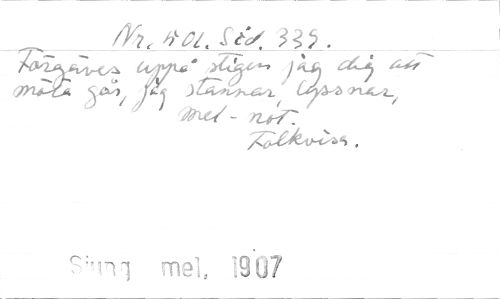 Nr. 401. Sid. 339.
Förgäves uppå stigen jag dig att
möta går, jag stannar, lyssnar,
mel-not.
Folkvisa.
Sjung mel. 1907